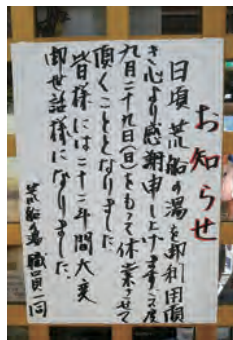 お知らせ
日頃荒船の湯を御利用頂
き心より感謝申し上げます。この度
九月二十九日(日)をもって休業させて
頂くこととなりました。
皆様には二十二年間大変
御世話様になりました。
荒船の湯 職員一同